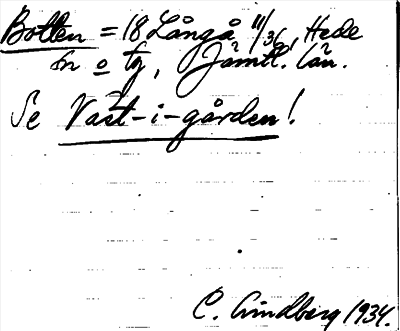 Botten = 18 Långå 11/36, Hede
sn o tg, Jämtl. län.
Se Väst-i-gården!
C. Lindberg 1934.